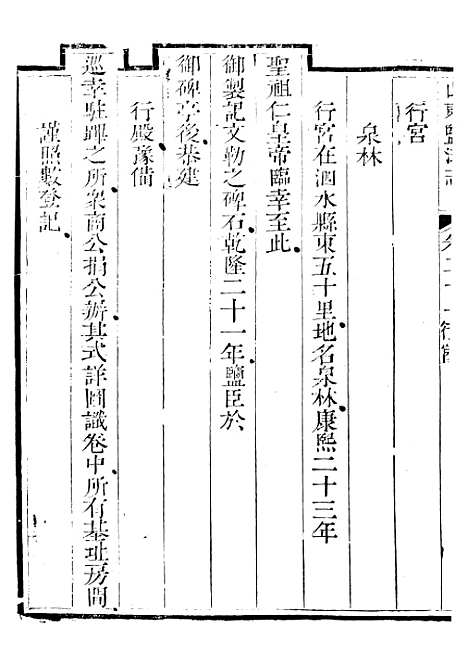 山東鹽法志
行宮
行宮
泉林
行宮在泗水縣東五十里地名泉林康熙二十三年
聖祖仁皇帝臨幸至此
御製記文勒之碑石乾隆二十一年鹽臣於
御碑亭後恭建
行殿豫備
巡幸駐蹕之所衆商公捐公辦其式詳圖識卷中所有基址房間
謹照數登記